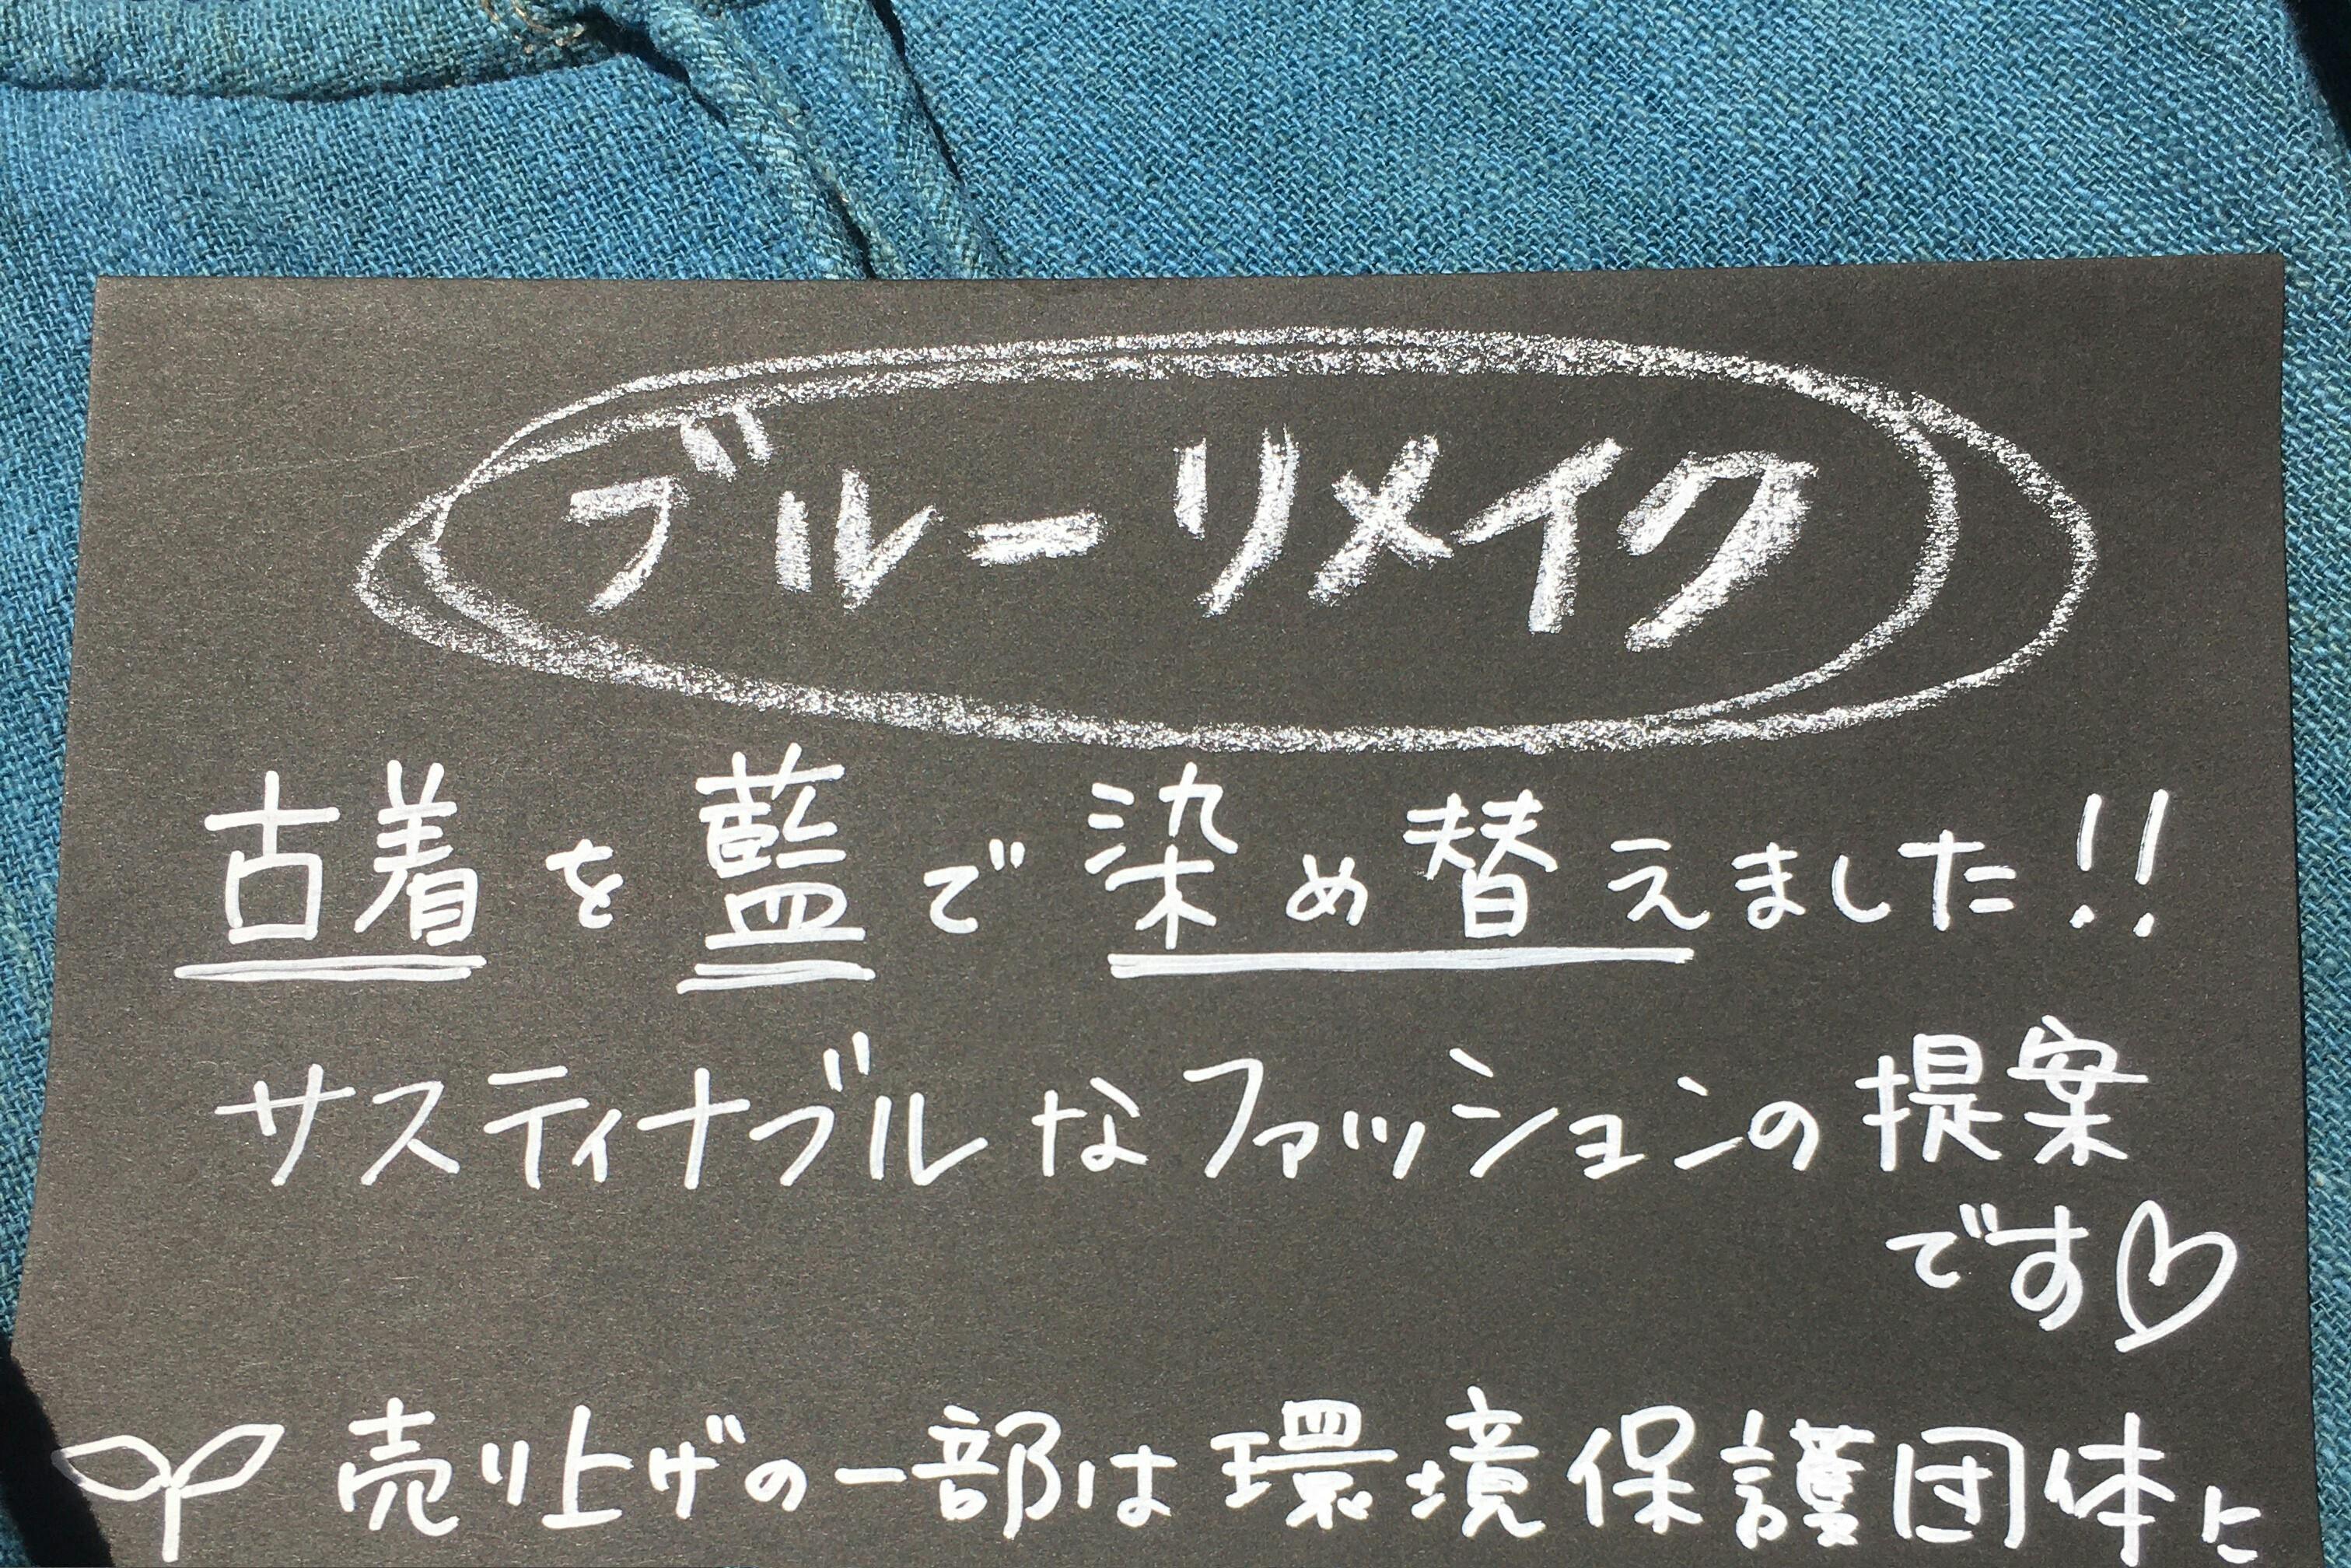 ブルーリメイク
古着を藍で染め替えました!!
サスティナブルなファッションの提案
です♡
売り上げの一部は環境保護団体に